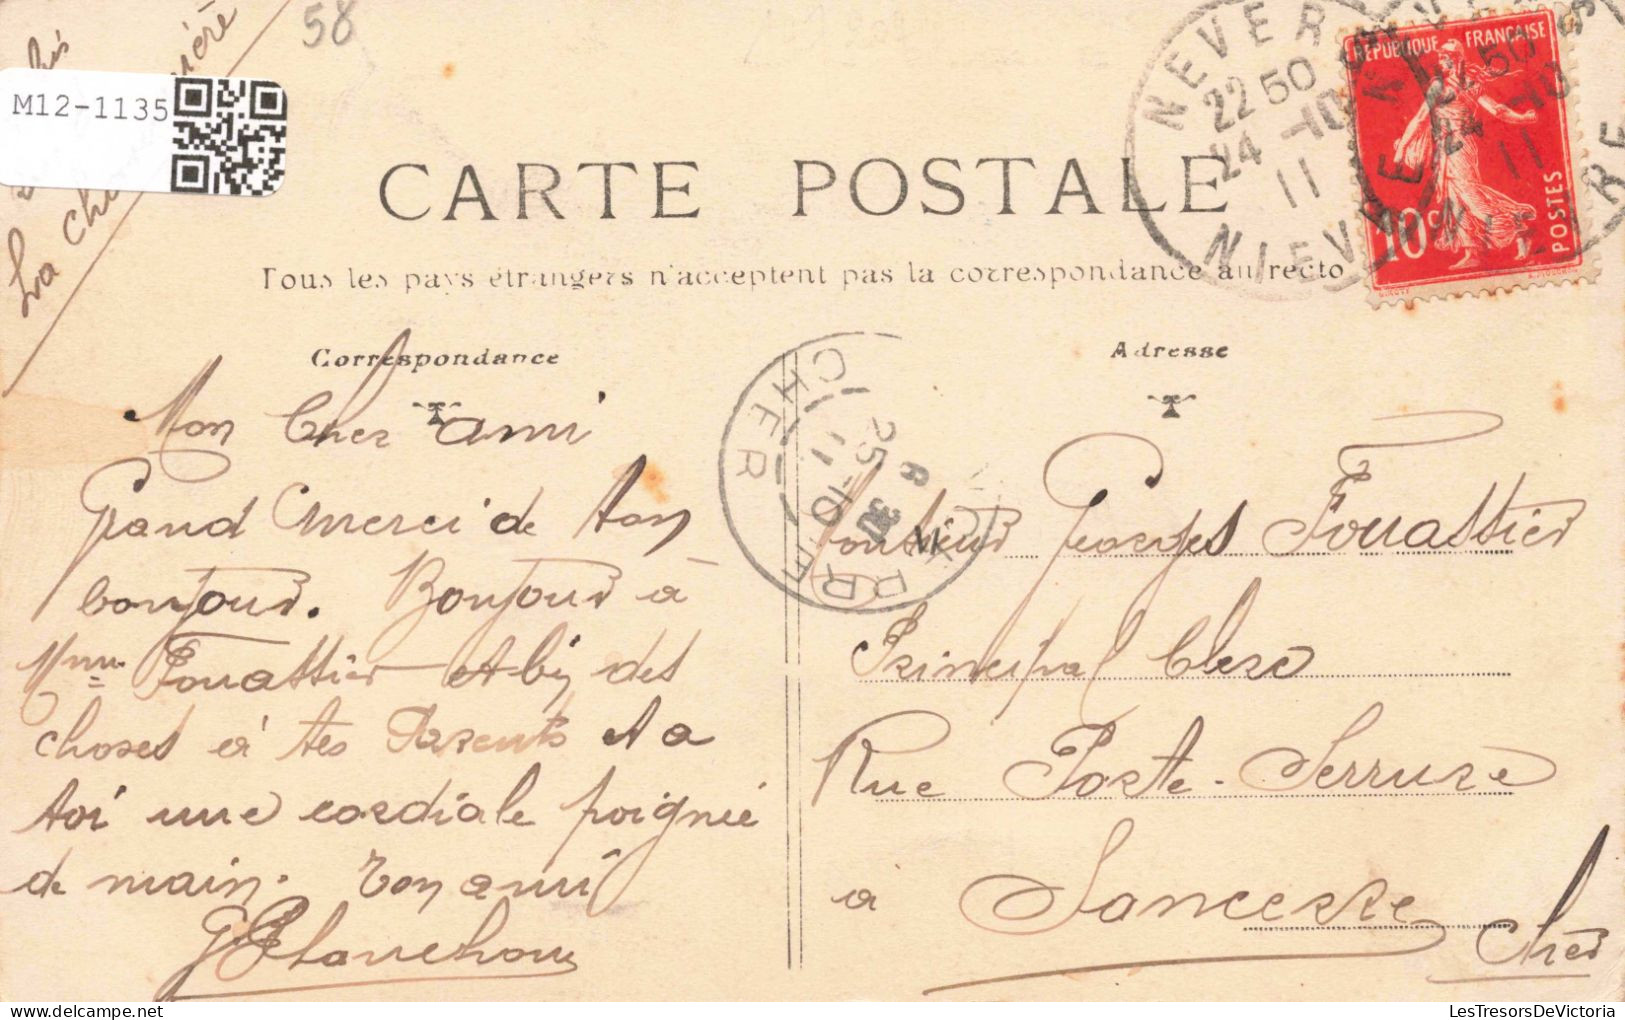 58
M12-1135
La
CARTE POSTALE
Tous les pays étrangers n'acceptent pas la correspondance au recto
NEVERS
22 50
24 -10
11
NIEVRE
REPUBLIQUE FRANÇAISE
10c
POSTES
Correspondance
Mon Cher ami
Grand Merci de ton
bonjour. Bonjour à
Mme Fouassier et bij des
choses à tes Parents et a
toi une cordiale poignée
de main. Ton ami
CHER
25 -10
11
Adresse
Monsieur Georges Fouassier
Principal Clerc
Rue Porte-Serrure
à Sancerre
Cher
LesTresorsDeVictoria